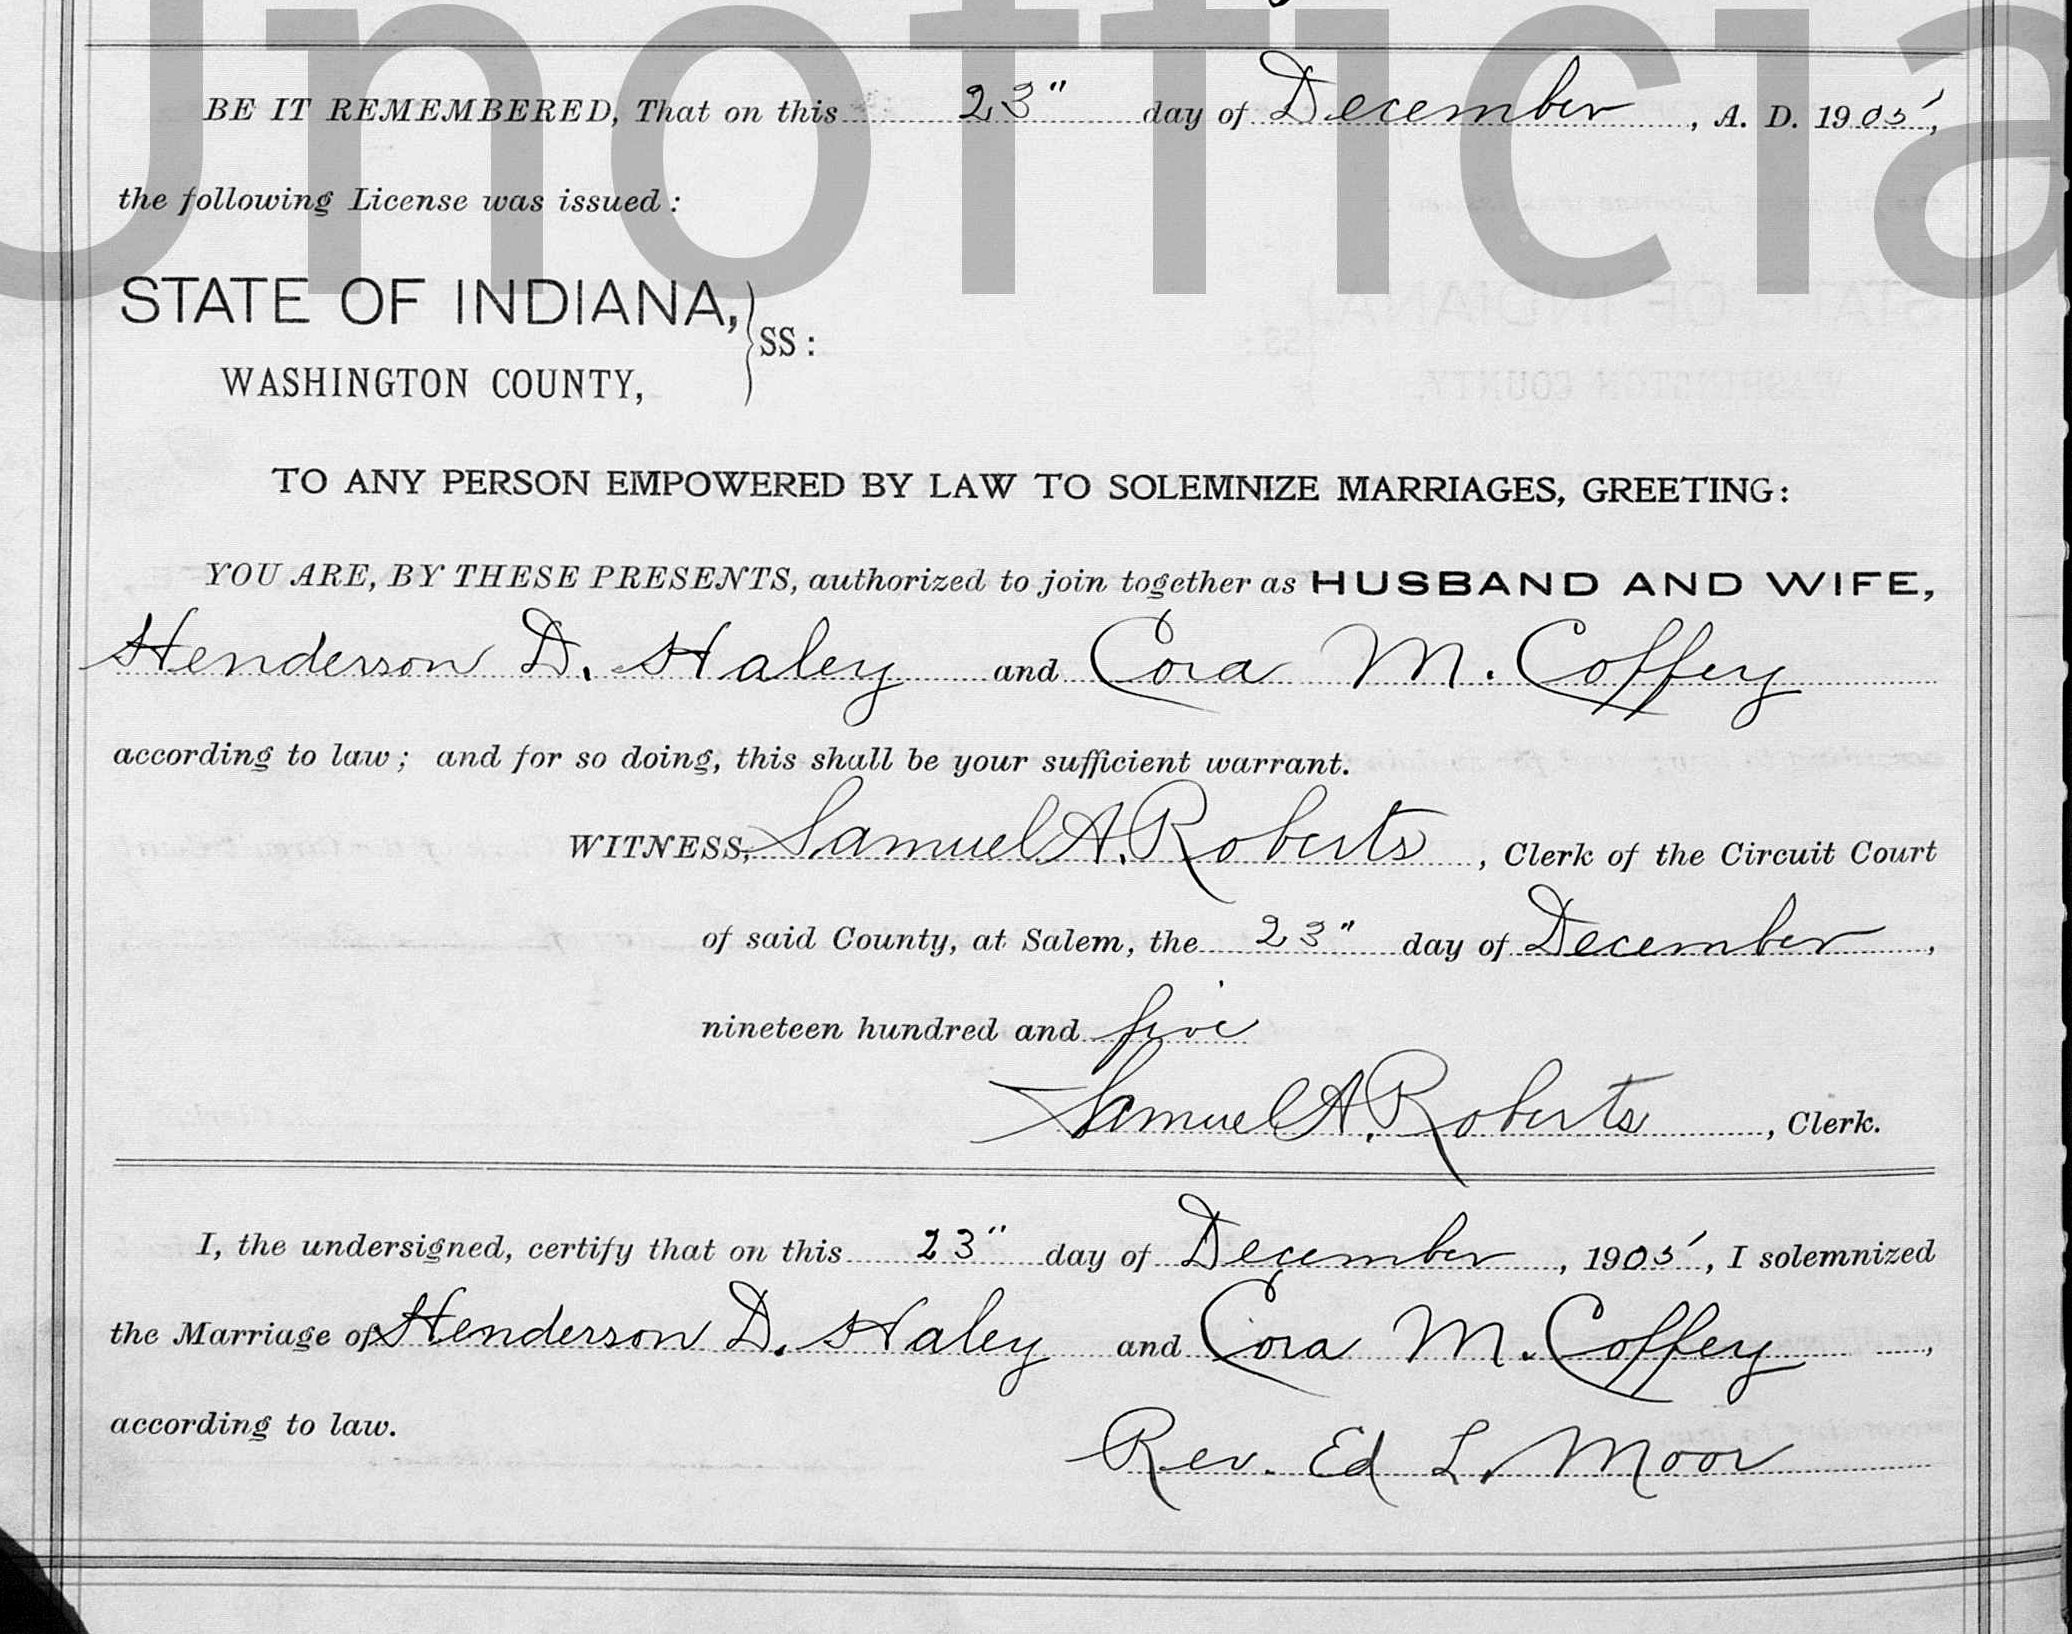 Unofficia
BE IT REMEMBERED, That on this 23" day of December, A. D. 1905,
the following License was issued:
STATE OF INDIANA,
SS:
WASHINGTON COUNTY,
TO ANY PERSON EMPOWERED BY LAW TO SOLEMNIZE MARRIAGES, GREETING:
YOU ARE, BY THESE PRESENTS, authorized to join together as HUSBAND AND WIFE,
Henderson D. Haley and Cora M. Coffey
according to law; and for so doing, this shall be your sufficient warrant.
WITNESS, Samuel A. Roberts, Clerk of the Circuit Court
of said County, at Salem, the 23" day of December,
nineteen hundred and five
Samuel A. Roberts, Clerk.
I, the undersigned, certify that on this 23" day of December, 1905, I solemnized
the Marriage of Henderson D. Haley and Cora M. Coffey,
according to law.
Rev. Ed L. Moor